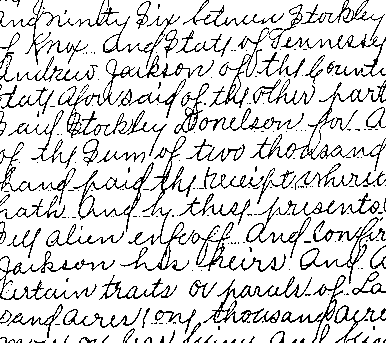 and ninety Six between Stockley
of Knox and State of Tennessey
Andrew Jackson of the County
State aforesaid of the other part
Said Stockley Donelson for a
of the Sum of two thousand
hand paid the receipt wherio
hath and by these presents
Sell alien enfeoff and Confir
Jackson his heirs and a
Certain traits or parcels of La
sand acres (one thousand acre
more or less lying and bein